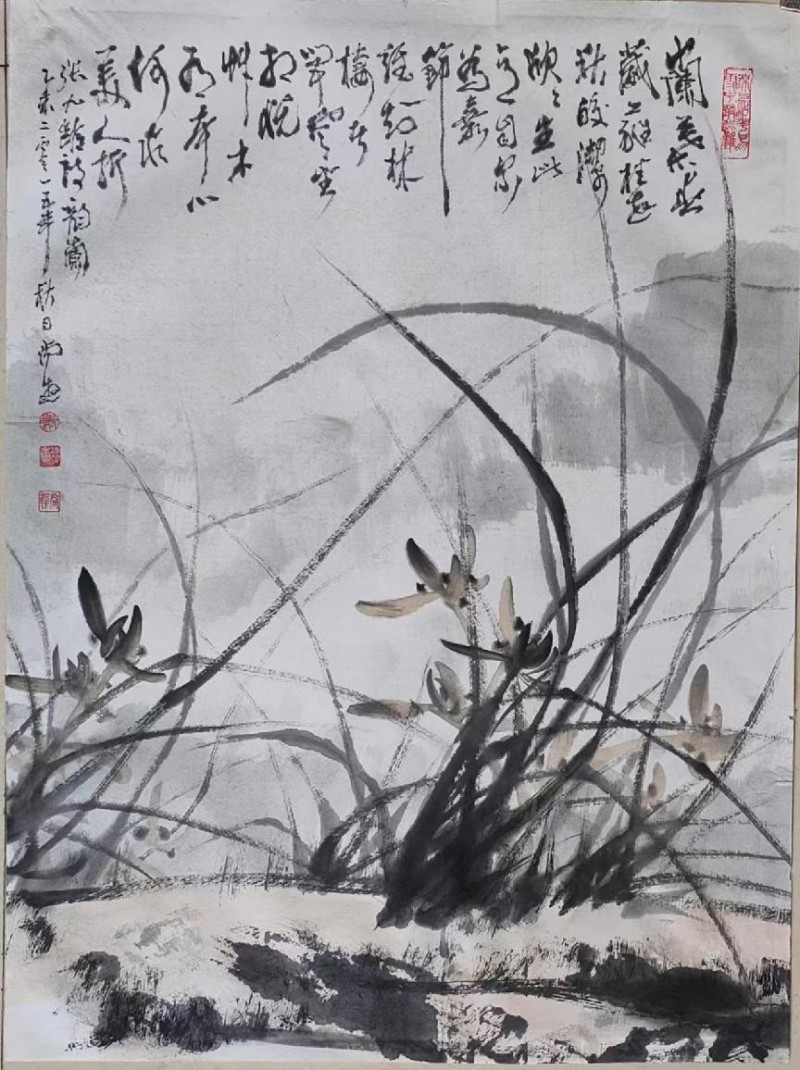 蘭葉春
葳蕤桂花
秋皎潔
欣々生此
意自爾
為嘉
節
誰知林
棲者
聞風坐
相悦
艸木
有本心
何求
美人折
張九齡詩韵蘭
乙未二零一五年秋日